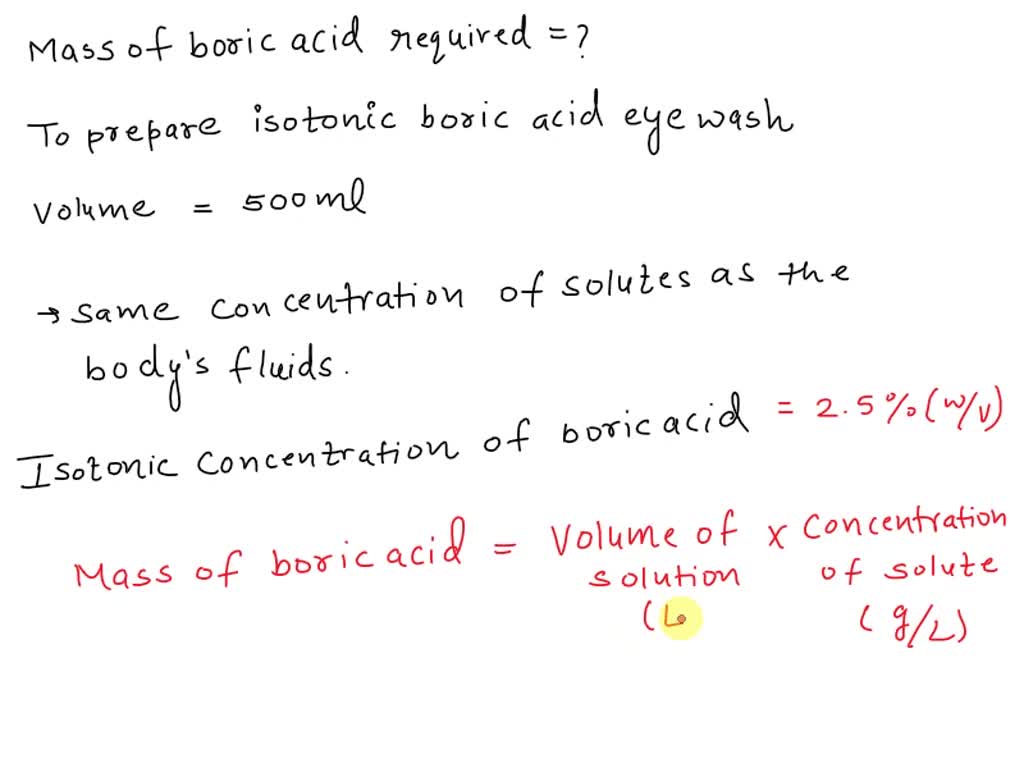 Mass of boric acid required = ?
To prepare isotonic boric acid eye wash
Volume = 500ml
→ same concentration of solutes as the
body's fluids.
Isotonic concentration of boric acid = 2.5% (w/v)
Mass of boric acid = Volume of solution (L × Concentration of solute (g/L)